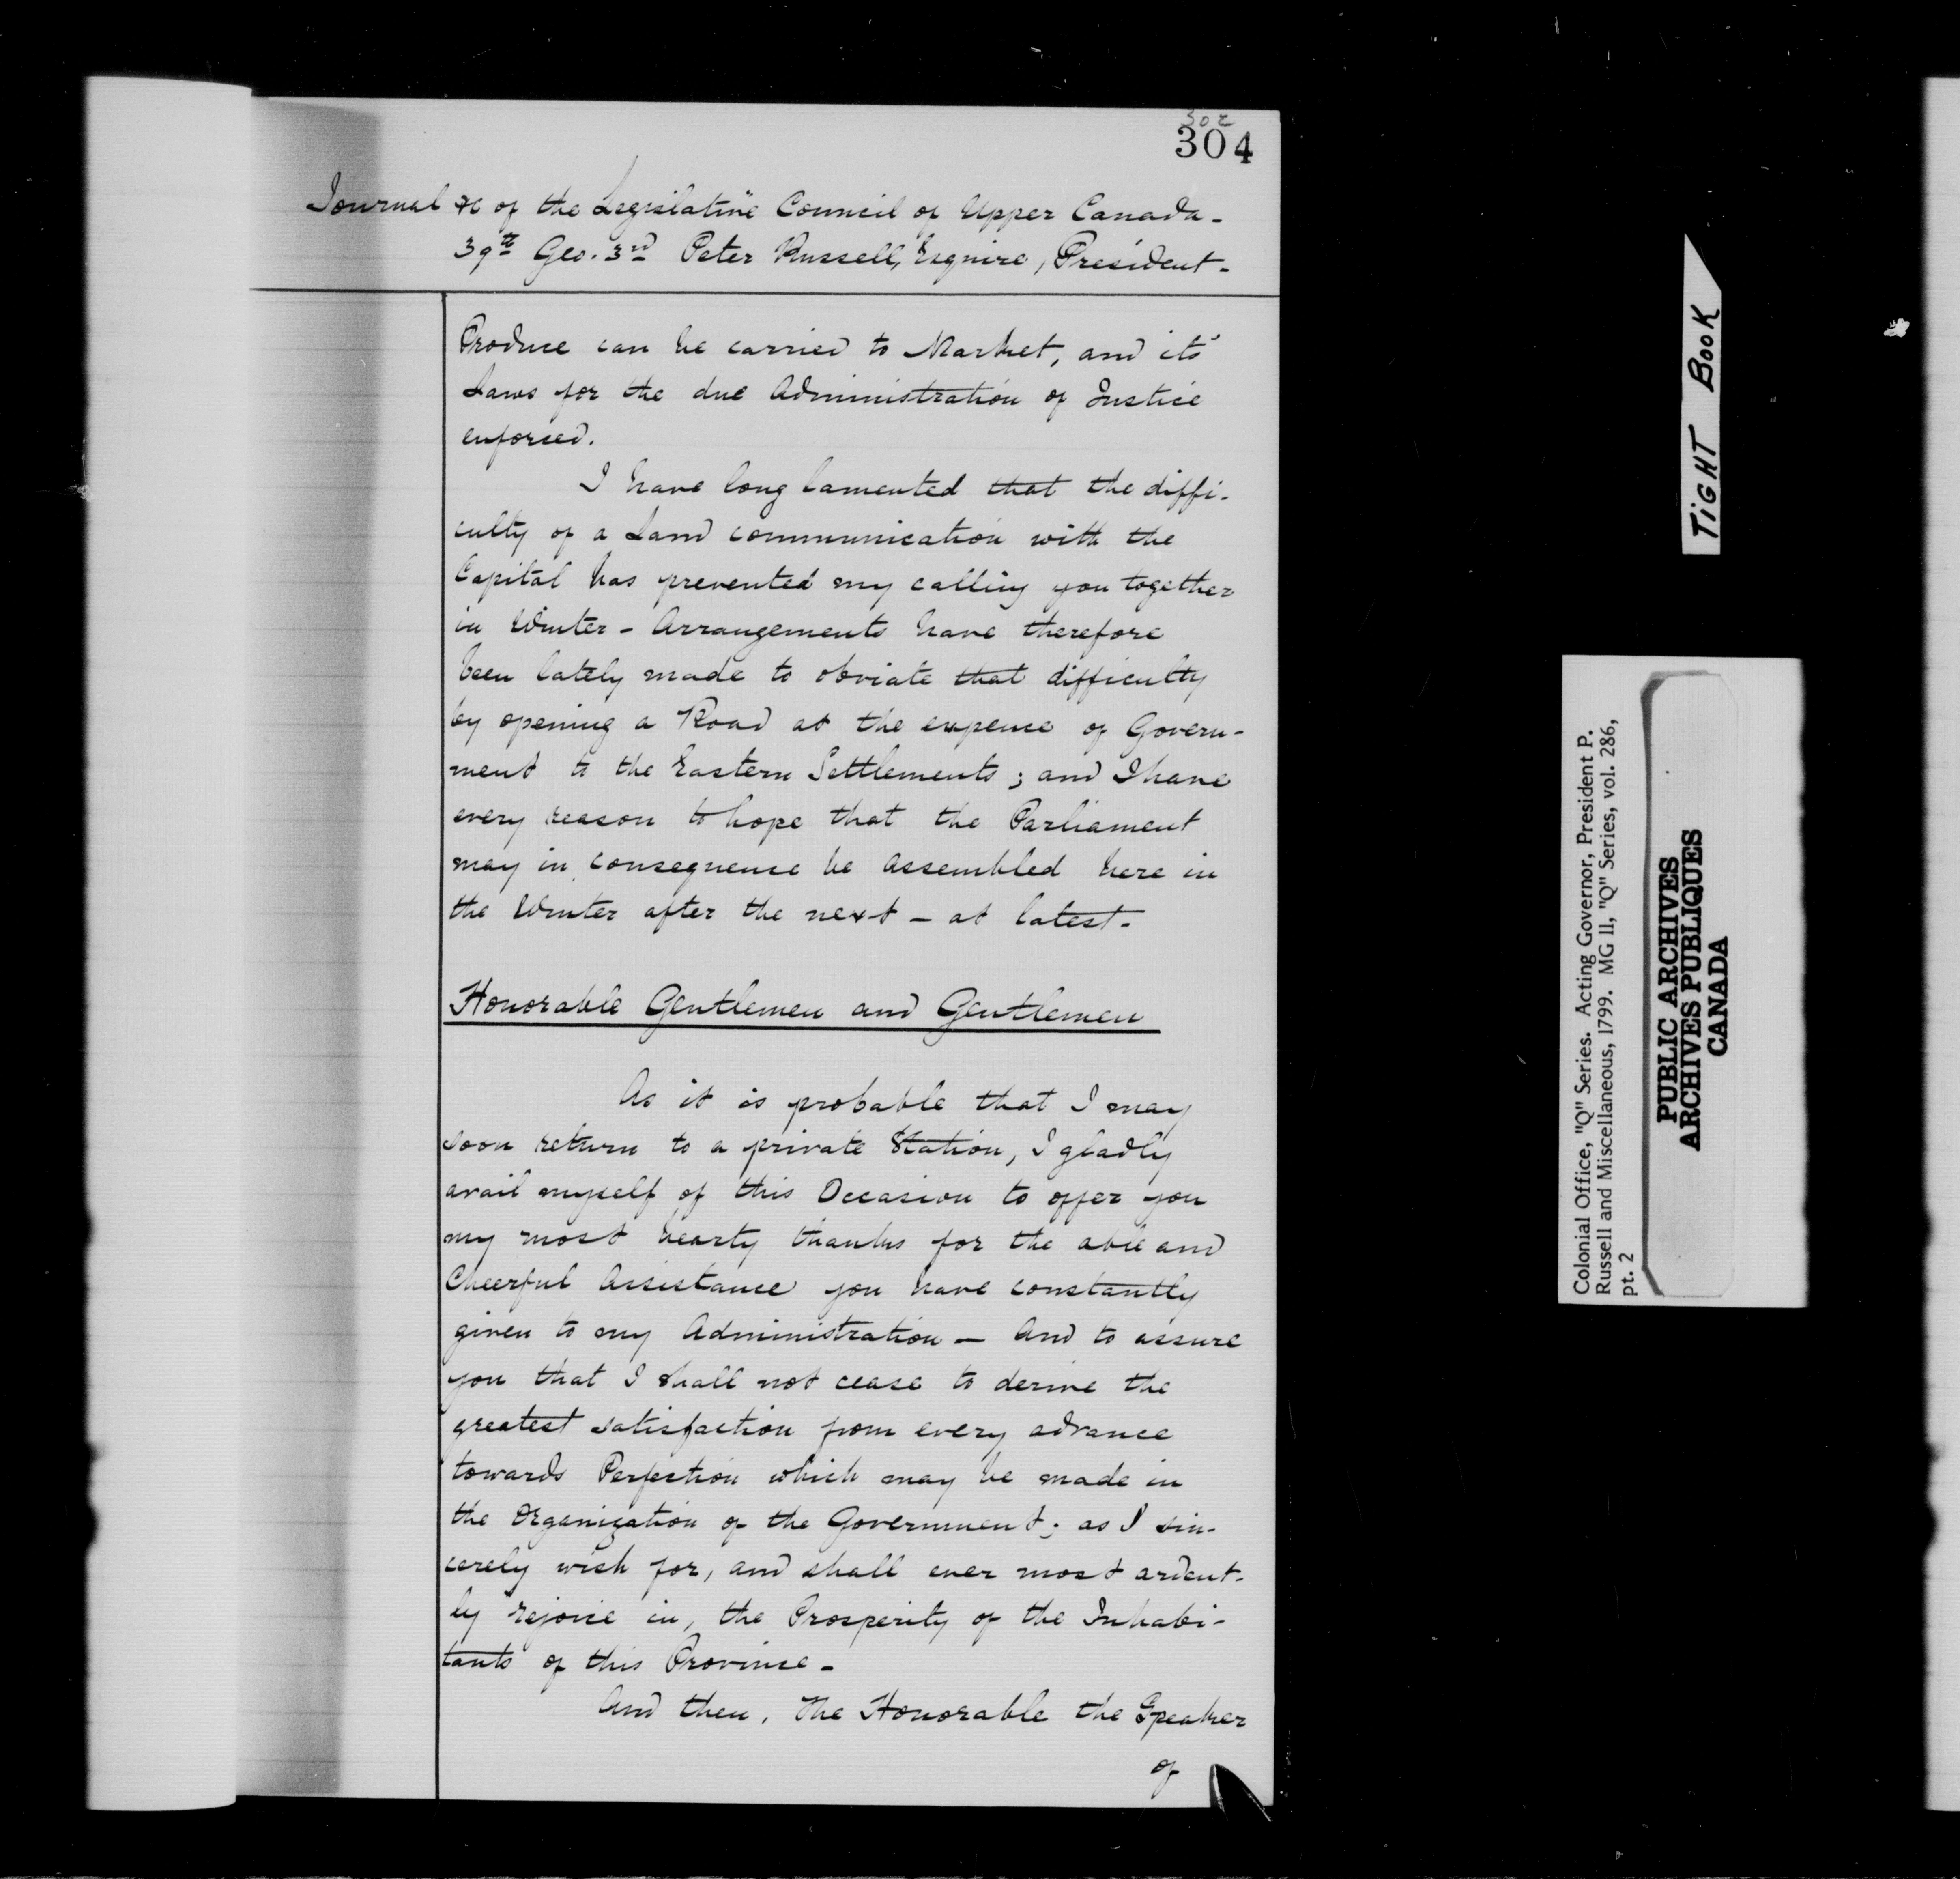 302
304
Journal &c of the Legislative Council of Upper Canada-
39th Geo. 3rd Peter Russell, Esquire, President-
Produce can be carried to Market, and its'
Laws for the due Administration of Justice
enforced.
I have long lamented that the diffi-
culty of a Land communication with the
Capital has prevented my calling you together
in Winter - Arrangements have therefore
been lately made to obviate that difficulty
by opening a Road at the expence of Govern-
ment to the Eastern Settlements; and I have
every reason to hope that the Parliament
may in consequence be assembled here in
the Winter after the next - at latest-
Honorable Gentlemen and Gentlemen
As it is probable that I may
soon return to a private Station, I gladly
avail myself of this Occasion to offer you
my most hearty thanks for the able and
Cheerful Assistance you have constantly
given to my Administration - And to assure
you that I shall not cease to derive the
greatest satisfaction from every advance
towards Perfection which may be made in
the Organization of the Government; as I sin-
cerely wish for, and shall ever most ardent-
ly rejoice in, the Prosperity of the Inhabi-
tants of this Province-
And then, The Honorable the Speaker
of
TIGHT BOOK
Colonial Office, "Q" Series. Acting Governor, President P.
Russell and Miscellaneous, 1799. MG 11, "Q" Series, vol. 286,
pt. 2
PUBLIC ARCHIVES
ARCHIVES PUBLIQUES
CANADA